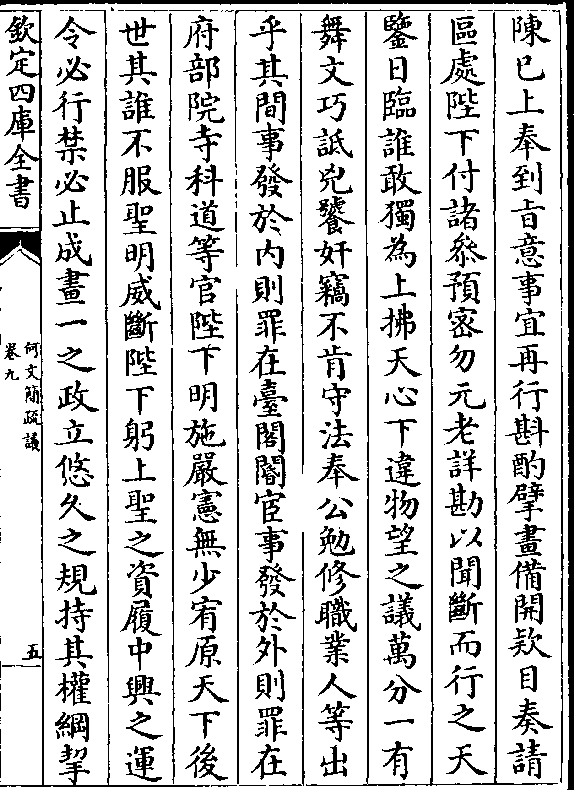 陳已上奉到㫖意事宜再行斟酌擘畫備開欵目奏請
區處陛下付諸叅預密勿元老詳勘以聞斷而行之天
鑒日臨誰敢獨為上拂天心下違物望之議萬分一有
舞文巧詆兇饕奸竊不肯守法奉公勉修職業人等出
乎其間事發於内則罪在臺閣閽宦事發於外則罪在
府部院寺科道等官陛下明施嚴憲無少宥原天下後
世其誰不服聖明威斷陛下躬上聖之資履中興之運
令必行禁必止成畫一之政立悠久之規持其權綱挈
欽定四庫全書
何文簡疏議
卷九
五